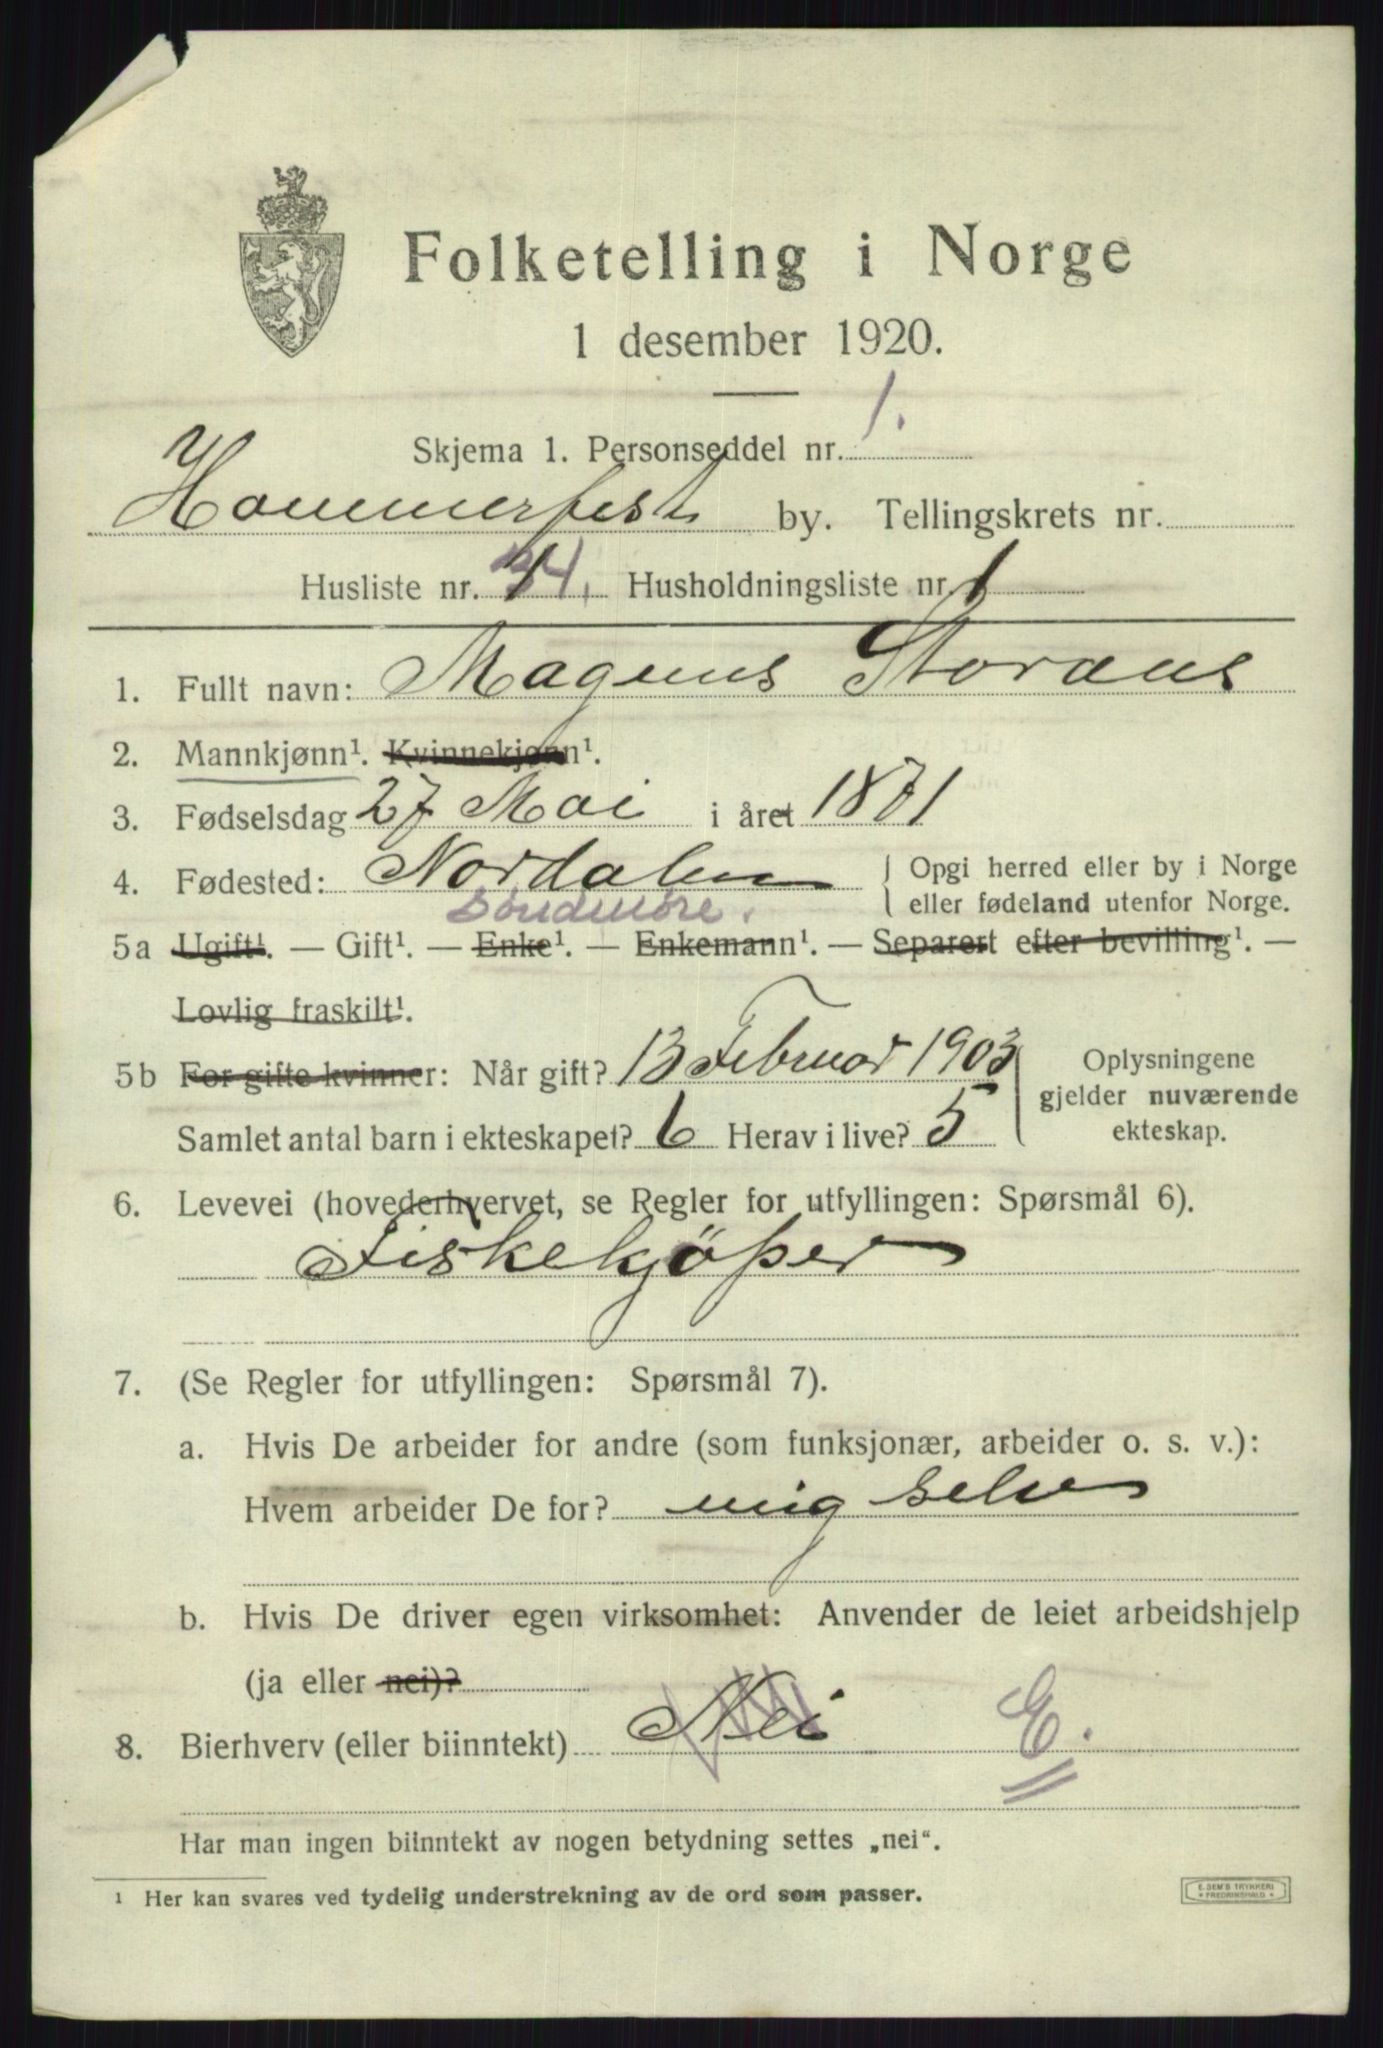 Folketelling i Norge
1 desember 1920.
Skjema 1. Personseddel nr. 1.
Hammerfest by. Tellingskrets nr.
Husliste nr. 34. Husholdningsliste nr. 1
1. Fullt navn: Magnus Storaas
2. Mannkjønn¹. Kvinnekjønn¹.
3. Fødselsdag 27 Mai i året 1871
4. Fødested: Nordalen { Opgi herred eller by i Norge
Söndmöre. eller fødeland utenfor Norge.
5a Ugift¹. — Gift¹. — Enke¹. — Enkemann¹. — Separert efter bevilling¹. —
Lovlig fraskilt¹.
5b For gifte kvinner: Når gift? 13 Februar 1903 Oplysningene
gjelder nuværende
Samlet antal barn i ekteskapet? 6 Herav i live? 5 ekteskap.
6. Levevei (hovederhvervet, se Regler for utfyllingen: Spørsmål 6).
Fiskekjöper
7. (Se Regler for utfyllingen: Spørsmål 7).
a. Hvis De arbeider for andre (som funksjonær, arbeider o. s. v.):
Hvem arbeider De for? mig selv
b. Hvis De driver egen virksomhet: Anvender de leiet arbeidshjelp
(ja eller nei)?
8. Bierhverv (eller biinntekt) Nei E.
Har man ingen biinntekt av nogen betydning settes „nei“.
¹ Her kan svares ved tydelig understrekning av de ord som passer.
E. SEM'S TRYKKERI
FREDRIKSHALD